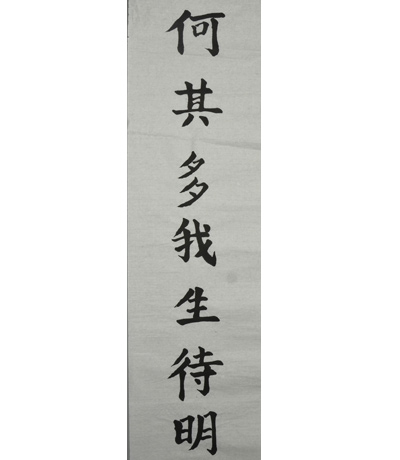 何其多我生待明